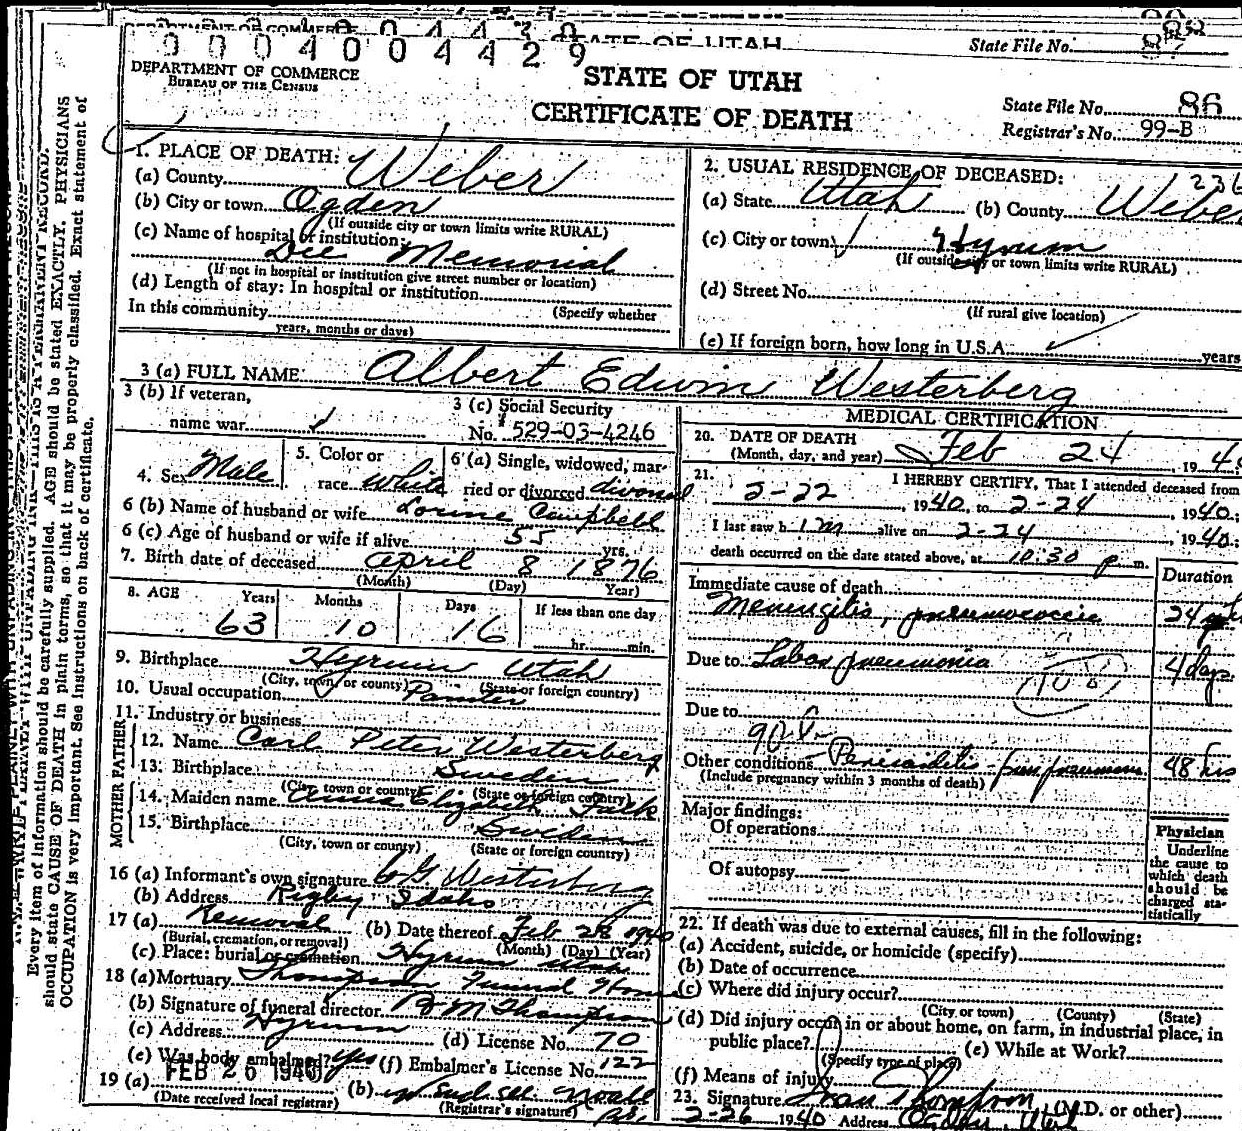 0 0 0 4 0 0 4 4 2 9
STATE OF UTAH
State File No. 87
DEPARTMENT OF COMMERCE
BUREAU OF THE CENSUS
STATE OF UTAH
CERTIFICATE OF DEATH
State File No. 86
Registrar's No. 99-B
1. PLACE OF DEATH:
(a) County Weber
(b) City or town Ogden
(If outside city or town limits write RURAL)
(c) Name of hospital or institution:
Dee Memorial
(If not in hospital or institution give street number or location)
(d) Length of stay: In hospital or institution
(Specify whether
In this community
years, months or days)
2. USUAL RESIDENCE OF DECEASED: 1236
(a) State Utah (b) County Weber
(c) City or town Hyrum
(If outside city or town limits write RURAL)
(d) Street No.
(If rural give location)
(e) If foreign born, how long in U.S.A. years
3 (a) FULL NAME Albert Edwin Westerberg
3 (b) If veteran,
name war
3 (c) Social Security
No. 529-03-4246
4. Sex Male
5. Color or
race White
6 (a) Single, widowed, mar-
ried or divorced divorced
6 (b) Name of husband or wife Campbell
6 (c) Age of husband or wife if alive 55 yrs.
7. Birth date of deceased April 8 1876
(Month) (Day) Year)
8. AGE Years Months Days If less than one day
63 10 16 hr. min.
9. Birthplace Hyrum Utah
(City, town, or county) (State or foreign country)
10. Usual occupation Painter
11. Industry or business
FATHER
12. Name Carl Peter Westerberg
13. Birthplace Sweden
(City, town or county) (State or foreign country)
MOTHER
14. Maiden name Anna Elizabeth Falk
15. Birthplace Sweden
(City, town or county) (State or foreign country)
16 (a) Informant's own signature C G Westerberg
(b) Address Rigby Idaho
17 (a) Removal (b) Date thereof Feb 28 1940
(Burial, cremation, or removal) (Month) (Day) (Year)
(c) Place: burial or cremation Hyrum Utah
18 (a) Mortuary Thompson Funeral Home
(b) Signature of funeral director B M Thompson
(c) Address Hyrum (d) License No. 70
(e) Was body embalmed? yes (f) Embalmer's License No. 122
19 (a) FEB 26 1940 (b)
(Date received local registrar) (Registrar's signature)
MEDICAL CERTIFICATION
20. DATE OF DEATH
(Month, day, and year) Feb 24, 1940
21. I HEREBY CERTIFY, That I attended deceased from
2-22, 1940, to 2-24, 1940;
I last saw him alive on 2-24, 1940;
death occurred on the date stated above, at 10:30 p m.
Duration
Immediate cause of death
Meningitis, pneumococcic 24
Due to Lobar pneumonia 4 days
Due to
Other conditions Pericarditis 48 hrs
(Include pregnancy within 3 months of death)
Major findings:
Of operations
Of autopsy —
Physician
Underline
the cause to
which death
should be
charged sta-
tistically
22. If death was due to external causes, fill in the following:
(a) Accident, suicide, or homicide (specify)
(b) Date of occurrence
(c) Where did injury occur?
(City or town) (County) (State)
(d) Did injury occur in or about home, on farm, in industrial place, in
public place? (e) While at Work?
(Specify type of place)
(f) Means of injury
23. Signature Thompson (M.D. or other)
2-26 1940 Address Ogden, Utah
Every item of information should be carefully supplied. AGE should be stated EXACTLY. PHYSICIANS
should state CAUSE OF DEATH in plain terms, so that it may be properly classified. Exact statement of
OCCUPATION is very important. See instructions on back of certificate.